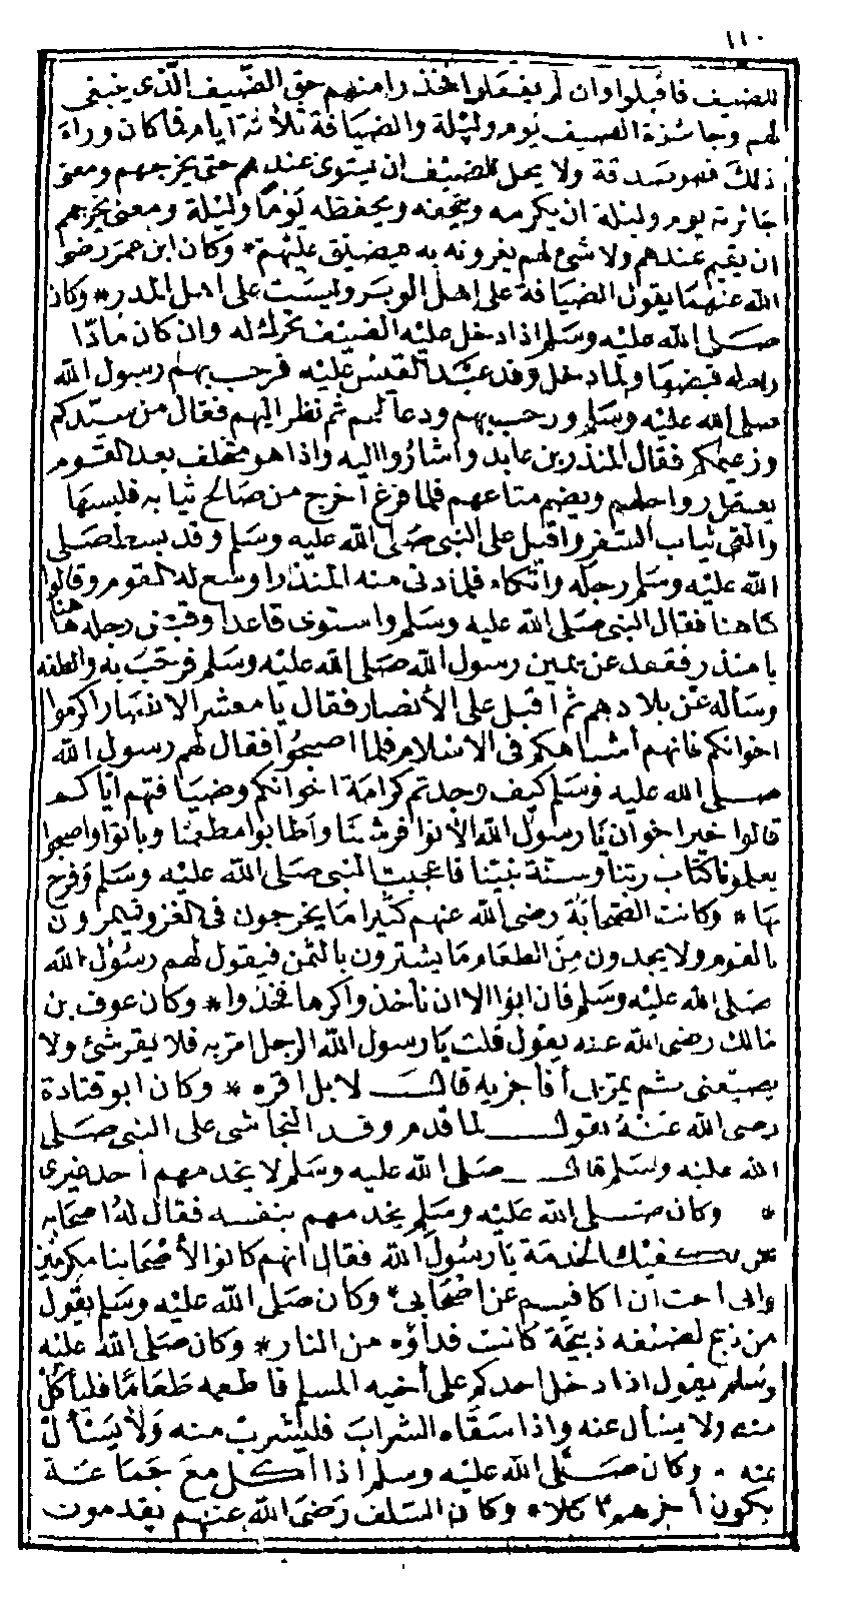 ١١٠
للضيف فاقبلوا وان لم يفعلوا فخذوا منهم حق الضيف الذى ينبغى
لهم وجائزة الضيف يوم وليلة والضيافة ثلاثة ايام فما كان وراء
ذلك فهو صدقة ولا يحل للضيف ان يستوى عندهم حتى يخرجهم ومعنى
جائزته يوم وليلة ان يكرمه ويتحفه ويحفظه يوما وليلة ومعنى يخرجهم
ان يقيم عندهم ولا شئ لهم يقرونه به فيضيق عليهم * وكان ابن عمر رضى
الله عنهما يقول الضيافة على اهل الوبر وليست على اهل المدر * وكان
صلى الله عليه وسلم اذا دخل عليه الضيف تحرك له وان كان مادّا
رجله قبضها ولما دخل وفد عبد القيس عليه فرحب بهم رسول الله
صلى الله عليه وسلم ورحب بهم ودعا لهم ثم نظر اليهم فقال من سيدكم
وزعيمكم فقال المنذر بن عايد واشاروا اليه واذا هو متخلف بعد القوم
بعض رواحلهم ويضم متاعهم فلما فرغ أخرج من صالح ثيابه فلبسها
والقى ثياب السفر واقبل على النبى صلى الله عليه وسلم وقد بسط صلى
الله عليه وسلم رجله واتكاء فلما دنى منه المنذر اوسع له القوم وقالوا
هاهنا فقال النبى صلى الله عليه وسلم واستوى قاعدا وقبض رجله هاهنا
يا منذر فقعد عن يمين رسول الله صلى الله عليه وسلم فرحب به والطفه
وسأله عن بلادهم ثم أقبل على الأنصار فقال يا معشر الانصار اكرموا
اخوانكم فانهم أشباهكم فى الاسلام فلما اصبحوا فقال لهم رسول الله
صلى الله عليه وسلم كيف وجدتم كرامة اخوانكم وضيافتهم اياكم
قالوا خير اخوان يا رسول الله الانوا فرشنا وأطابوا مطعمنا وباتوا واصبحوا
يعلمونا كتاب ربنا وسنة نبينا فاعجبت النبى صلى الله عليه وسلم وفرح
بها * وكانت الصحابة رضى الله عنهم كثيرا ما يخرجون فى الغزو فيمرون
بالقوم ولا يجدون من الطعام ما يشترون بالثمن فيقول لهم رسول الله
صلى الله عليه وسلم فان ابوا الا ان نأخذوا كرها فخذوا * وكان عوف بن
مالك رضى الله عنه يقول قلت يا رسول الله الرجل امر به فلا يقرشئ ولا
يضيّفنى ثم يمر بى أفأجزيه قال لا بل اقره * وكان ابو قتادة
رضى الله عنه يقول لما قدم وفد النجاشى على النبى صلى
الله عليه وسلم قال صلى الله عليه وسلم لا يخدمهم أحد غيرى
* وكان صلى الله عليه وسلم يخدمهم بنفسه فقال له اصحابه
نحن نكفيك الخدمة يا رسول الله فقال انهم كانوا لأصحابنا مكرمين
وانى احب ان اكافيهم عن اصحابى * وكان صلى الله عليه وسلم يقول
من ذبح لضيفه ذبيحة كانت فداؤه من النار * وكان صلى الله عليه
وسلم يقول اذا دخل احدكم على أخيه المسلم فاطعمه طعاما فليأكل
منه ولا يسأل عنه واذا سقاه الشراب فليشرب منه ولا يسأل
عنه * وكان صلى الله عليه وسلم اذا أكل مع جماعة
يكون أخرهم اكلا * وكان السلف رضى الله عنهم يقدمون